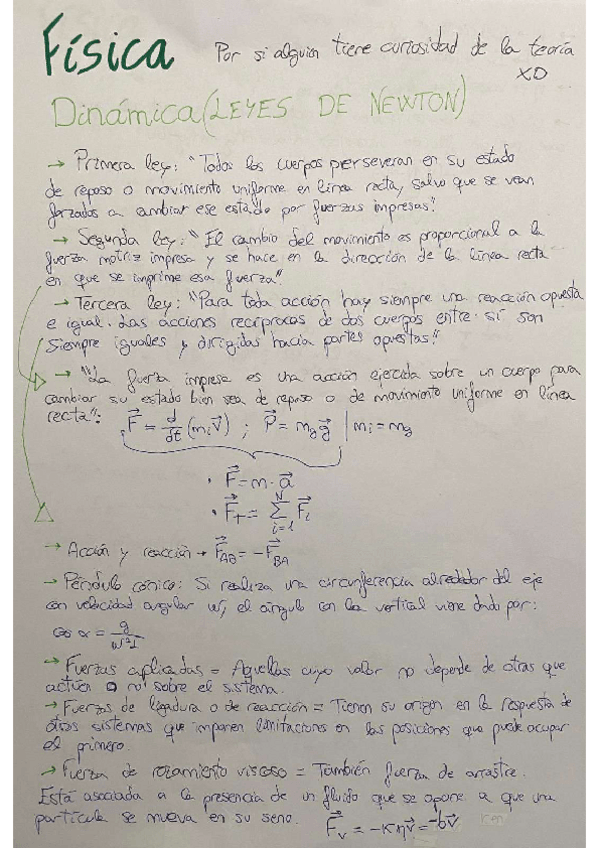 Física Por si alguien tiene curiosidad de la teoría
XD
Dinámica (LEYES DE NEWTON)
→ Primera ley: "Todos los cuerpos perseveran en su estado
de reposo o movimiento uniforme en línea recta, salvo que se vean
forzados a cambiar ese estado por fuerzas impresas."
→ Segunda ley: "El cambio del movimiento es proporcional a la
fuerza motriz impresa y se hace en la dirección de la línea recta
en que se imprime esa fuerza".
→ Tercera ley: "Para toda acción hay siempre una reacción opuesta
e igual. Las acciones recíprocas de dos cuerpos entre sí son
siempre iguales y dirigidas hacia partes opuestas."
→ "La fuerza impresa es una acción ejercida sobre un cuerpo para
cambiar su estado bien sea de reposo o de movimiento uniforme en línea
recta": F⃗ = d/dt (mᵢv⃗) ; P⃗ = m_g g⃗ | mᵢ = m_g
· F⃗ = m · a⃗
· F⃗_T = Σ_{i=1}^{N} F⃗ᵢ
→ Acción y reacción → F⃗_AB = -F⃗_BA
→ Péndulo cónico: Si realiza una circunferencia alrededor del eje
con velocidad angular w, el ángulo con la vertical viene dado por:
cos α = g/w²l
→ Fuerzas aplicadas = Aquellas cuyo valor no depende de otras que
actúan o no sobre el sistema.
→ Fuerzas de ligadura o de reacción = Tienen su origen en la respuesta de
otros sistemas que imponen limitaciones en las posiciones que puede ocupar
el primero.
→ Fuerza de rozamiento viscoso = También fuerza de arrastre.
Está asociada a la presencia de un fluido que se opone a que una
partícula se mueva en su seno. F⃗_v = -κηv⃗ = -bv⃗